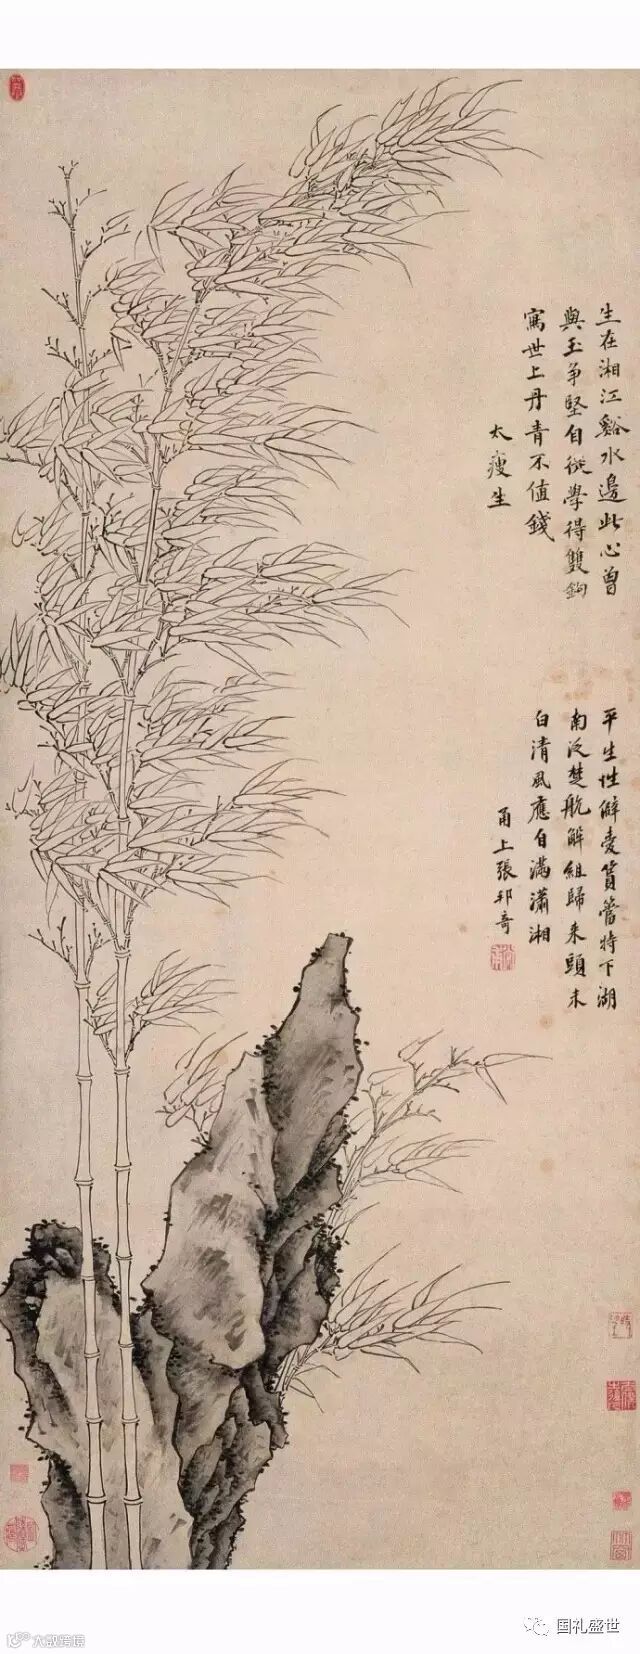 生在湘江谿水邊此心曾
與玉爭堅自從學得雙鉤
寫世上丹青不值錢
太瘦生
平生性僻愛篔簹特下湖
南泛楚航解組歸來頭未
白清風應自滿瀟湘
甬上張邦奇
大歌跨境
国礼盛世